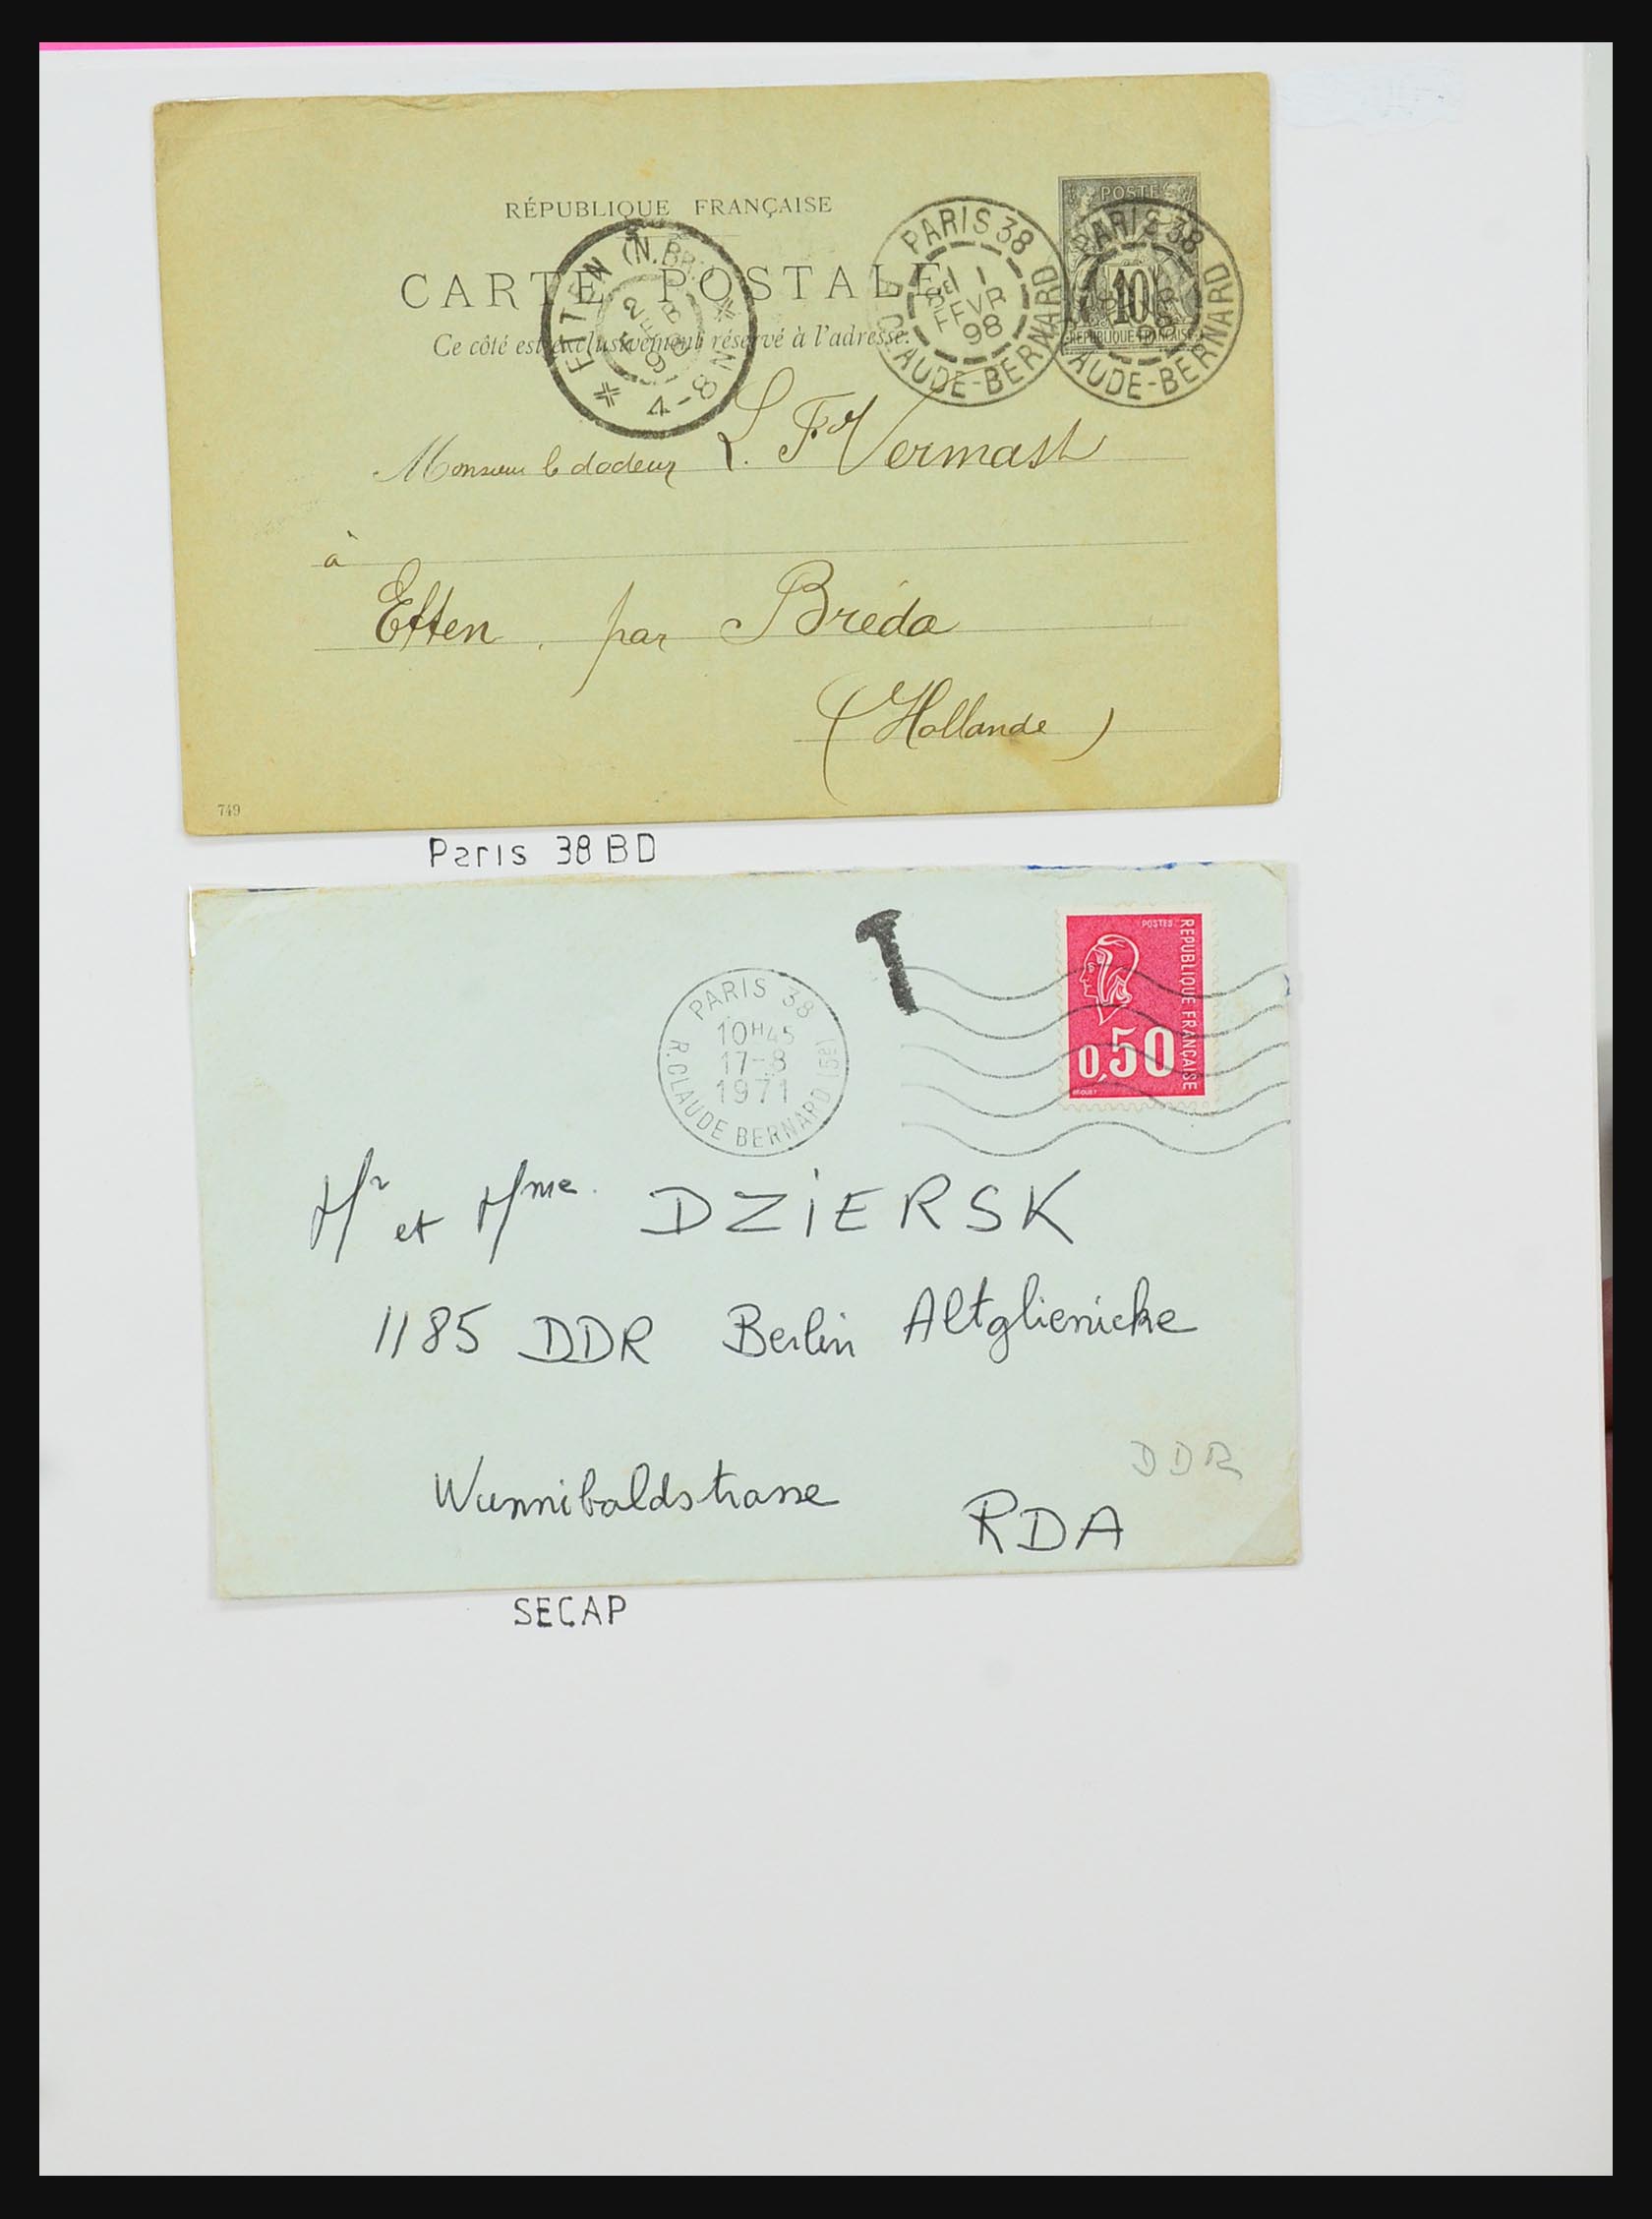 RÉPUBLIQUE FRANÇAISE
CARTE POSTALE
Ce côté est exclusivement réservé à l'adresse.
ETTEN (N.BR.)
2 FEB 98
4-8 N
PARIS 38
1 FEVR 98
CLAUDE-BERNARD
POSTES
10
REPUBLIQUE FRANCAISE
PARIS 38
CLAUDE-BERNARD
Monsieur le docteur L. F. Vermast
à
Etten, par Bréda
(Hollande)
749
Paris 38 BD
T
PARIS 38
10H45
17-8
1971
R.CLAUDE BERNARD (5E)
POSTES
REPUBLIQUE FRANÇAISE
0,50
BEQUET
Mr et Mme. DZIERSK
1185 DDR Berlin Altglienicke
Wunnibaldstrasse
DDR
RDA
SECAP